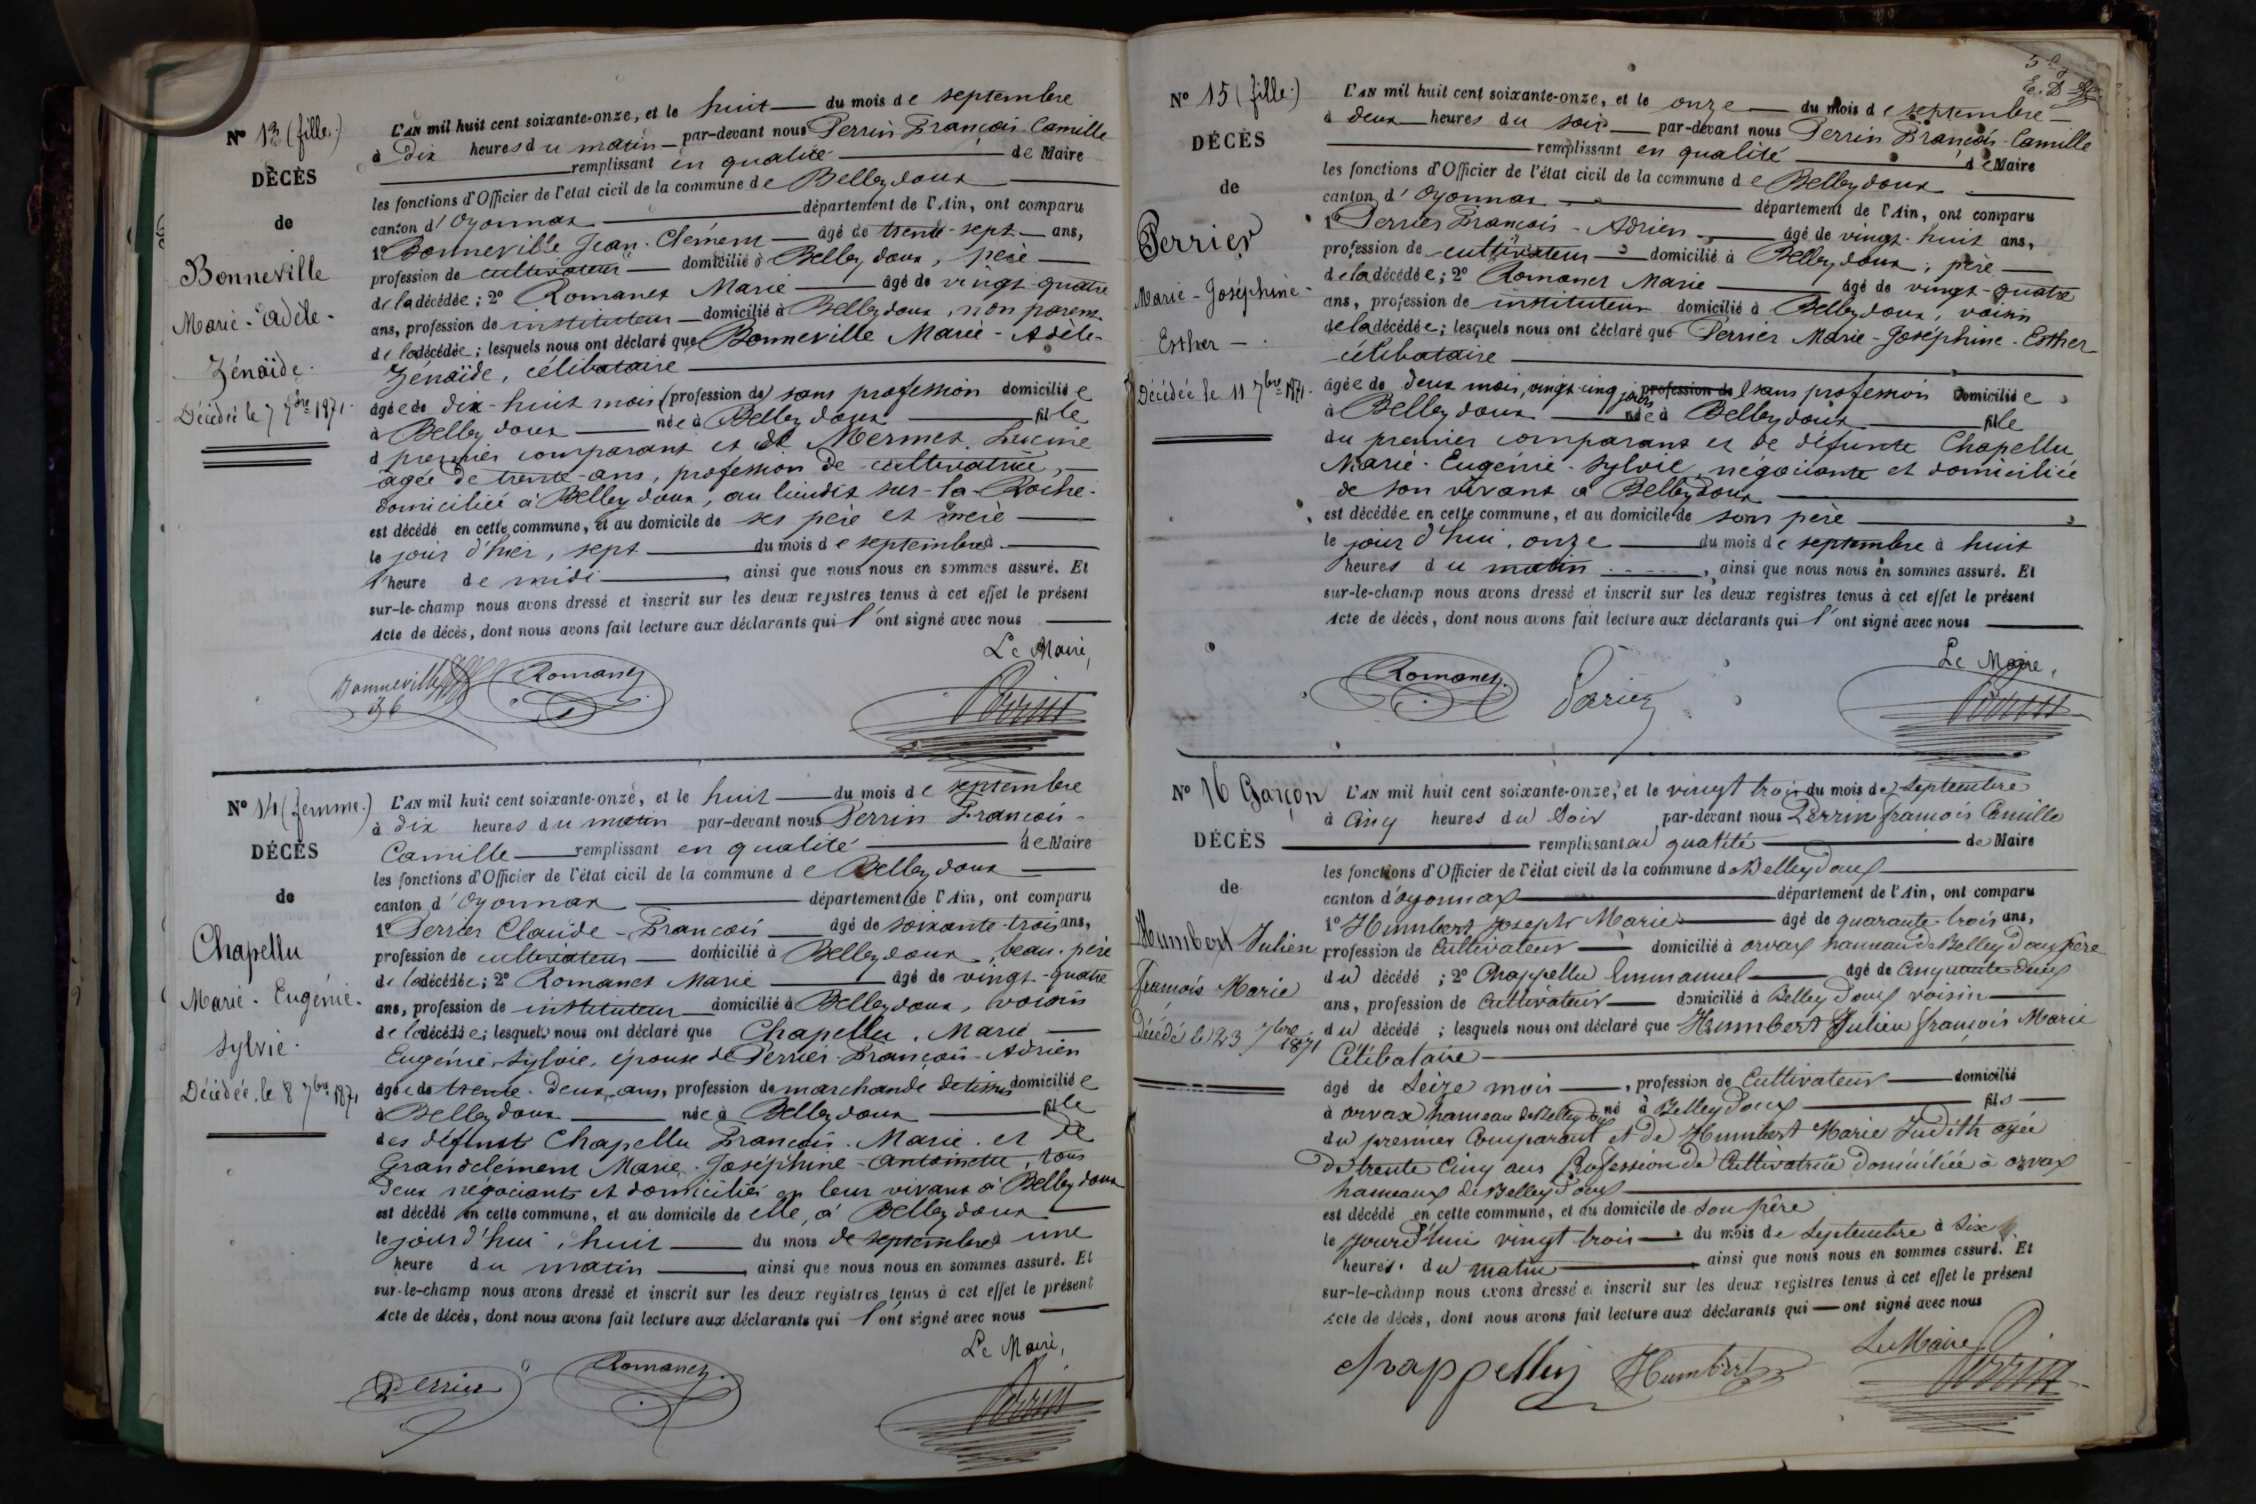 Nº 13 (fille.)
DÉCÈS
de
Bonneville
Marie-Adèle-
Zénaïde.
Décédée le 7 7bre 1871.
L'AN mil huit cent soixante-onze, et le huit du mois de septembre
à dix heures du matin par-devant nous Perrin François Camille
remplissant en qualité de Maire
les fonctions d'Officier de l'état civil de la commune de Belleydoux
canton d'Oyonnax département de l'Ain, ont comparu
1º Bonneville Jean-Clément âgé de trente-sept ans,
profession de cultivateur domicilié à Belleydoux, père
de la décédée; 2º Romanet Marie âgé de vingt-quatre
ans, profession de instituteur domicilié à Belleydoux, non parent
de la décédée; lesquels nous ont déclaré que Bonneville Marie-Adèle-
Zénaïde, célibataire
âgée de dix-huit mois (profession de) sans profession domiciliée
à Belleydoux née à Belleydoux fille
d premier comparant et de Mermet Lucine
agée de trente ans, profession de cultivatrice,
domiciliée à Belleydoux, au lieudit sur-la-Roche.
est décédé en cette commune, et au domicile de ses père et mère
le jour d'hier, sept du mois de septembre à
1 heure de midi, ainsi que nous nous en sommes assuré. Et
sur-le-champ nous avons dressé et inscrit sur les deux registres tenus à cet effet le présent
Acte de décès, dont nous avons fait lecture aux déclarants qui l'ont signé avec nous
Le Maire,
Bonneville Romanet Perrin
Nº 14 (femme.)
DÉCÈS
de
Chapellu
Marie-Eugénie-
Sylvie.
Décédée le 8 7bre 1871
L'AN mil huit cent soixante-onze, et le huit du mois de septembre
à dix heures du matin par-devant nous Perrin François-
Camille remplissant en qualité de Maire
les fonctions d'Officier de l'état civil de la commune de Belleydoux
canton d'Oyonnax département de l'Ain, ont comparu
1º Perrier Claude-François âgé de soixante-trois ans,
profession de cultivateur domicilié à Belleydoux, beau-père
de la décédée; 2º Romanet Marie âgé de vingt-quatre
ans, profession de instituteur domicilié à Belleydoux, voisin
de la décédée; lesquels nous ont déclaré que Chapellu, Marie
Eugénie-Sylvie, épouse de Perrier François-Adrien
âgée de trente-deux ans, profession de marchande de tissus domiciliée
à Belleydoux née à Belleydoux fille
des défunts Chapellu François-Marie et de
Grandclément Marie-Joséphine-Antoinette, tous
deux négociants et domiciliés en leur vivant à Belleydoux
est décédé en cette commune, et au domicile de elle, à Belleydoux
le jour d'hui, huit du mois de septembre à une
heure du matin, ainsi que nous nous en sommes assuré. Et
sur-le-champ nous avons dressé et inscrit sur les deux registres tenus à cet effet le présent
Acte de décès, dont nous avons fait lecture aux déclarants qui l'ont signé avec nous
Le Maire,
Perrier Romanet Perrin
Nº 15 (fille.)
DÉCÈS
de
Perrier
Marie-Joséphine-
Esther
Décédée le 11 7bre 1871.
L'AN mil huit cent soixante-onze, et le onze du mois de septembre
à deux heures du soir par-devant nous Perrin François-Camille
remplissant en qualité de Maire
les fonctions d'Officier de l'état civil de la commune de Belleydoux
canton d'Oyonnax département de l'Ain, ont comparu
1º Perrier François-Adrien âgé de vingt-huit ans,
profession de cultivateur domicilié à Belleydoux; père
de la décédée; 2º Romanet Marie âgé de vingt-quatre
ans, profession de instituteur domicilié à Belleydoux; voisin
de la décédée; lesquels nous ont déclaré que Perrier Marie-Joséphine-Esther
célibataire
âgée de deux mois, vingt-cinq jours profession de sans profession domiciliée
à Belleydoux née à Belleydoux fille
du premier comparant et de défunte Chapellu
Marie-Eugénie-Sylvie, négociante et domiciliée
de son vivant à Belleydoux
est décédée en cette commune, et au domicile de son père
le jour d'hui, onze du mois de septembre à huit
heures du matin, ainsi que nous nous en sommes assuré. Et
sur-le-champ nous avons dressé et inscrit sur les deux registres tenus à cet effet le présent
Acte de décès, dont nous avons fait lecture aux déclarants qui l'ont signé avec nous
Le Maire,
Romanet Perrin
Nº 16 Garçon
DÉCÈS
de
Humbert Julien
françois Marie
Décédé le 23 7bre 1871
L'AN mil huit cent soixante-onze, et le vingt trois du mois de Septembre
à Cinq heures du Soir par-devant nous Perrin françois Camille
remplissant en qualité de Maire
les fonctions d'Officier de l'état civil de la commune de Belleydoux
canton d'oyonnax département de l'Ain, ont comparu
1º Humbert Joseph Marie âgé de quarante trois ans,
profession de Cultivateur domicilié à orvax hameau de Belleydoux père
du décédé; 2º Chappellu Emmanuel âgé de Cinquante deux
ans, profession de Cultivateur domicilié à Belleydoux voisin
du décédé; lesquels nous ont déclaré que Humbert Julien françois Marie
Célibataire
âgé de Seize mois, profession de Cultivateur domicilié
à orvax hameau de Belleydoux né à Belleydoux fils
du premier Comparant et de Humbert Marie Judith agée
de trente Cinq ans Profession de Cultivatrice domiciliée à orvax
hameaux de Belleydoux
est décédé en cette commune, et au domicile de Son père
le jourd'hui vingt trois du mois de Septembre à Six
heures du matin ainsi que nous nous en sommes assuré. Et
sur-le-champ nous avons dressé et inscrit sur les deux registres tenus à cet effet le présent
Acte de décès, dont nous avons fait lecture aux déclarants qui ont signé avec nous
Le Maire
Chappelluy Humbert Perrin